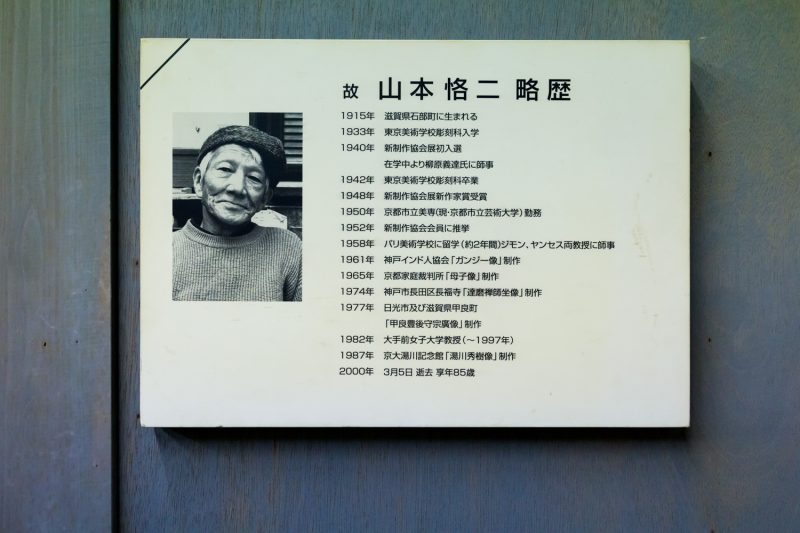 故 山本恪二 略歴
1915年 滋賀県石部町に生まれる
1933年 東京美術学校彫刻科入学
1940年 新制作協会展初入選
在学中より柳原義達氏に師事
1942年 東京美術学校彫刻科卒業
1948年 新制作協会展新作家賞受賞
1950年 京都市立美専(現・京都市立芸術大学)勤務
1952年 新制作協会会員に推挙
1958年 パリ美術学校に留学(約2年間)ジモン、ヤンセス両教授に師事
1961年 神戸インド人協会「ガンジー像」制作
1965年 京都家庭裁判所「母子像」制作
1974年 神戸市長田区長福寺「達磨禅師坐像」制作
1977年 日光市及び滋賀県甲良町
「甲良豊後守宗廣像」制作
1982年 大手前女子大学教授(〜1997年)
1987年 京大湯川記念館「湯川秀樹像」制作
2000年 3月5日 逝去 享年85歳